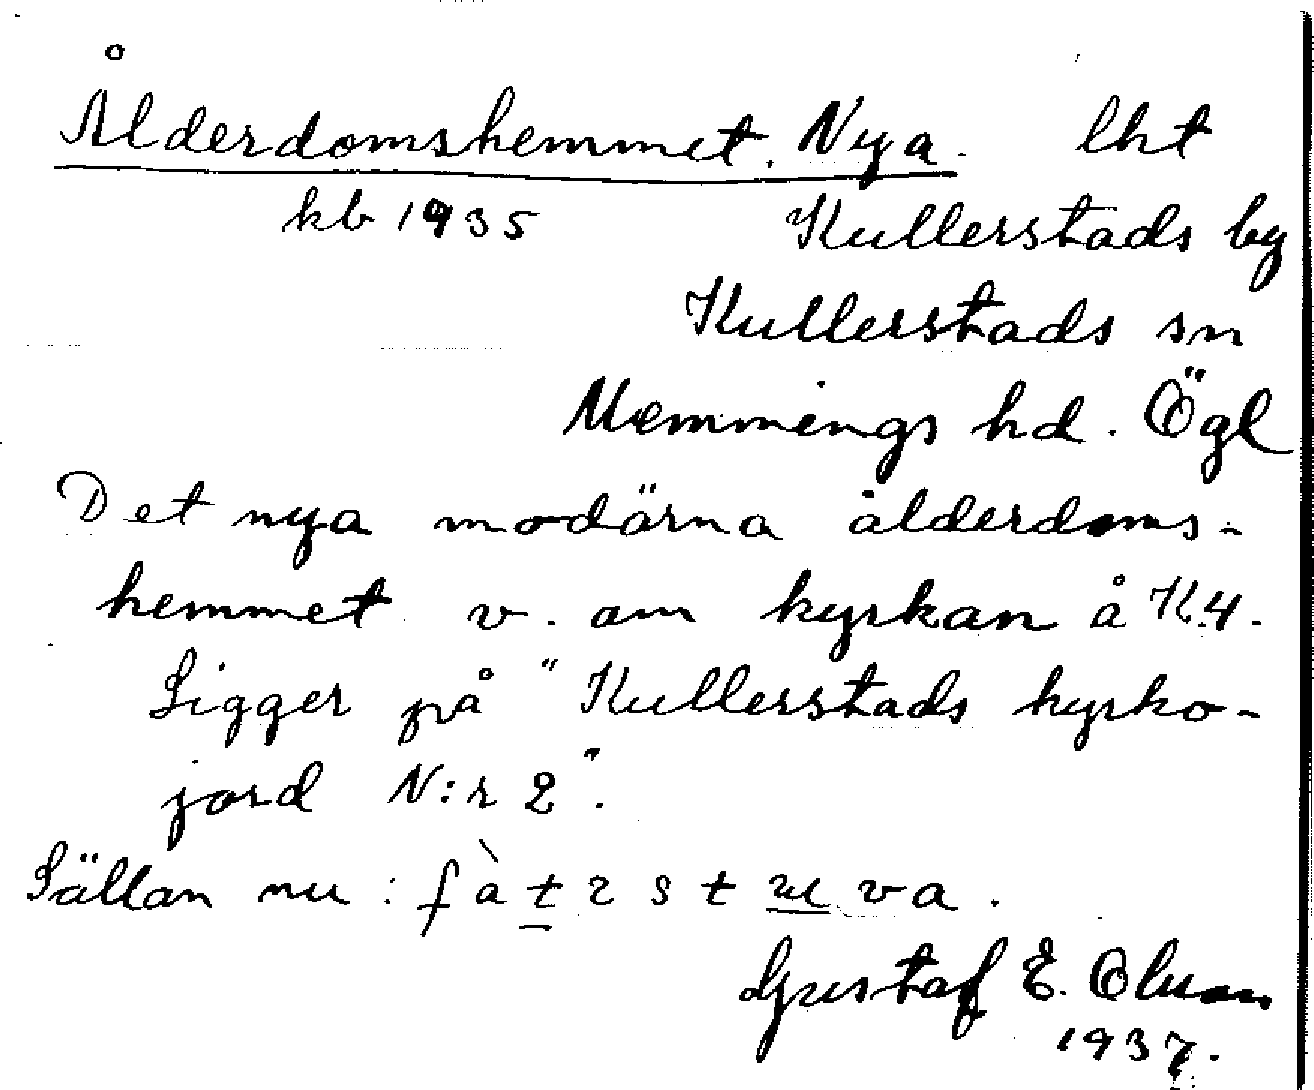 Ålderdomshemmet. Nya. lht
kb 1935 Kullerstads by
Kullerstads sn
Memmings hd. Ögl
Det nya modärna ålderdoms-
hemmet v. om kyrkan å K.4.
Ligger på "Kullerstads kyrko-
jord N:r 2".
Sällan nu : fàtzstuva.
Gustaf E. Olsson
1937.